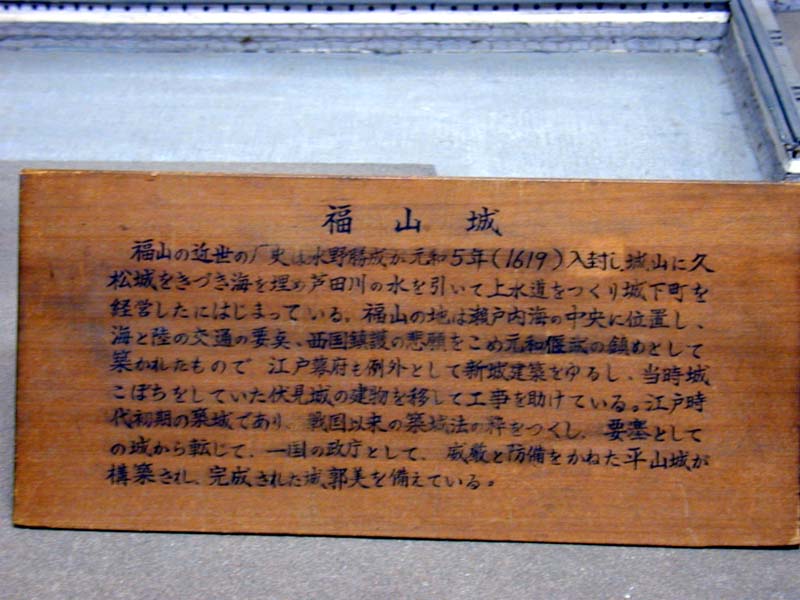 福山城
福山の近世の厂史は水野勝成が元和5年(1619)入封し、城山に久
松城をきづき海を埋め芦田川の水を引いて上水道をつくり城下町を
経営したにはじまっている。福山の地は瀬戸内海の中央に位置し、
海と陸の交通の要点、西国鎮護の悲願をこめ元和偃武の鎮めとして
築かれたもので 江戸幕府も例外として新城建築をゆるし、当時城
こぼちをしていた伏見城の建物を移して工事を助けている。江戸時
代初期の築城であり、戦国以来の築城法の粋をつくし、要塞として
の城から転じて、一国の政庁として、威厳と防備をかねた平山城が
構築され、完成された城郭美を備えている。